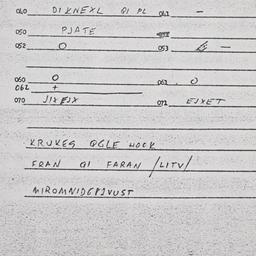 040 DIKNEXL GI PL 043 –
050 PJATE
052 O 053 –
060 O 063 O
062 +
070 JIX EJX 072 EJXET
KRUKES QGLE HOCK
FRAN GI FARAN /LITV/
MIROMNIDEPJVUST